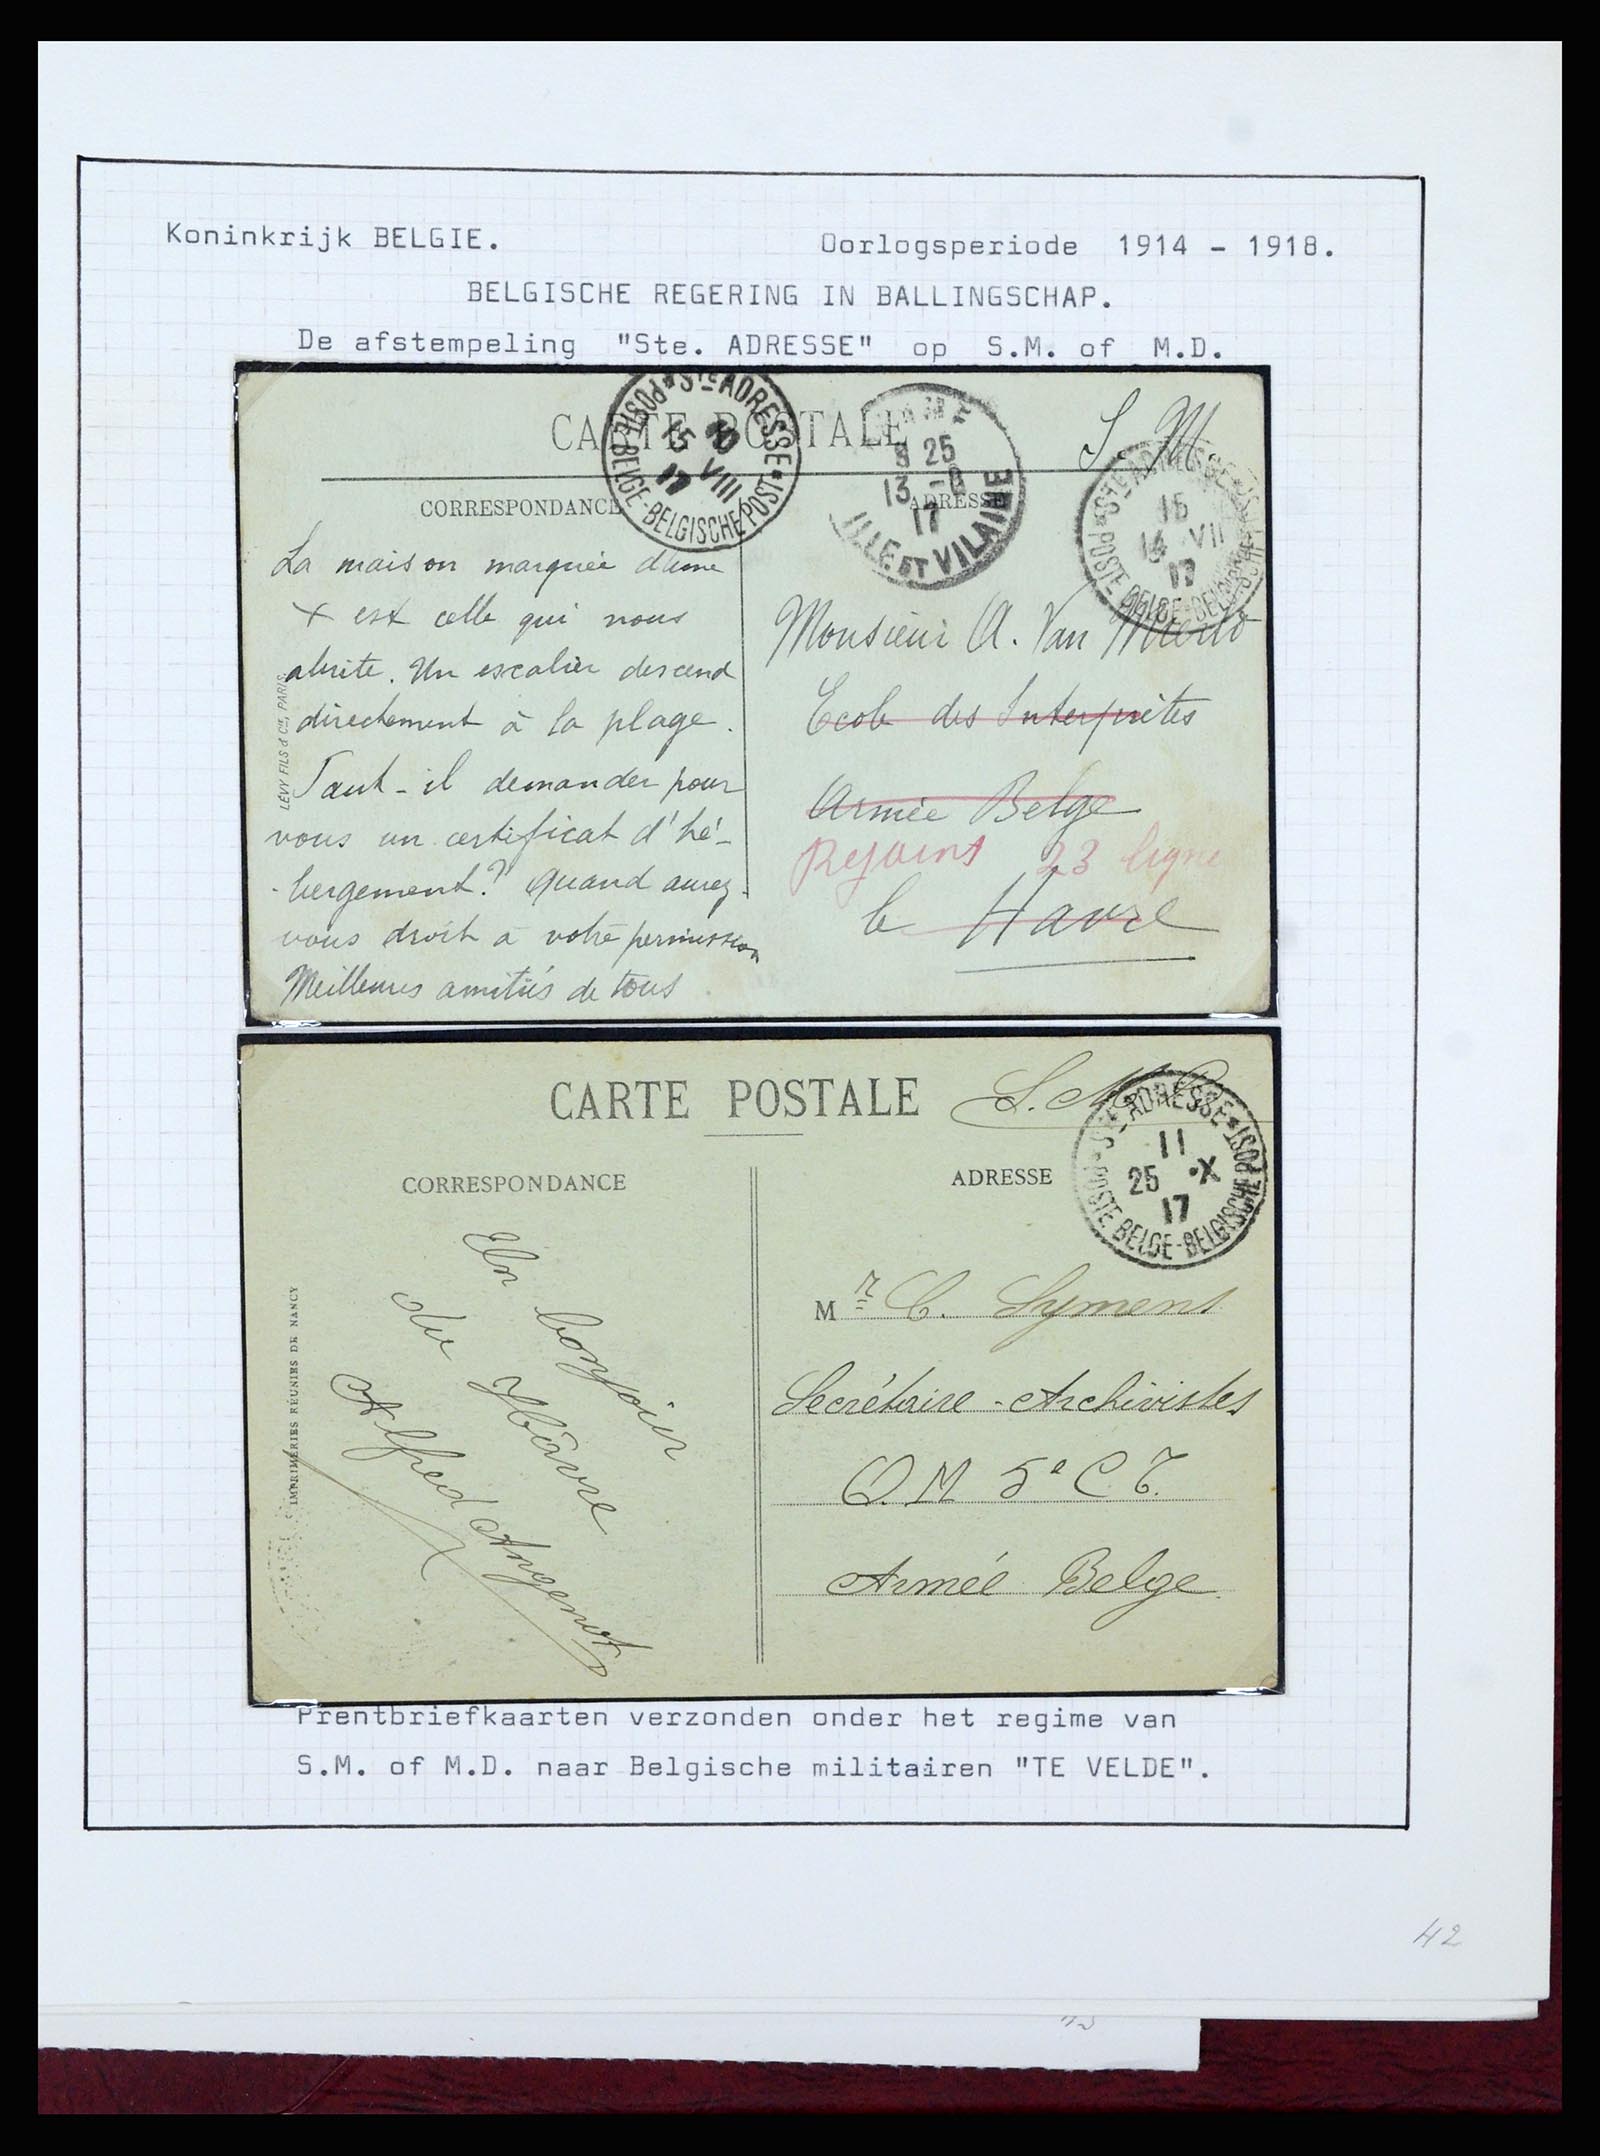 Koninkrijk BELGIE.
Oorlogsperiode 1914 - 1918.
BELGISCHE REGERING IN BALLINGSCHAP.
De afstempeling "Ste. ADRESSE" op S.M. of M.D.
CARTE POSTALE
S. M
CORRESPONDANCE
ADRESSE
STE ADRESSE
POSTE BELGE-BELGISCHE POST
15 10
VIII
17
8 25
13 -8
17
ILLE ET VILAINE
STE ADRESSE
15
14 VII
17
POSTE BELGE-BELGISCHE
La maison marquée d'une
x est celle qui nous
abrite. Un escalier descend
directement à la plage.
Faut-il demander pour
vous un certificat d'hé-
bergement? Quand aurez-
vous droit à votre permission
Meilleures amitiés de tous
LÉVY FILS & Cie, PARIS.
Monsieur A. Van
Ecole des Interprètes
Armée Belge
Rejoint 23 ligne
le Havre
CARTE POSTALE
S. M.
CORRESPONDANCE
ADRESSE
STE ADRESSE
POSTE BELGE-BELGISCHE POST
11
25 X
17
Un bonjour
du Hâvre
Alfred Angenot
IMPRIMERIES RÉUNIES DE NANCY
Mr C. Symens
Secrétaire-Archivistes
Q.M 5e C.T.
Armée Belge
Prentbriefkaarten verzonden onder het regime van
S.M. of M.D. naar Belgische militairen "TE VELDE".
42